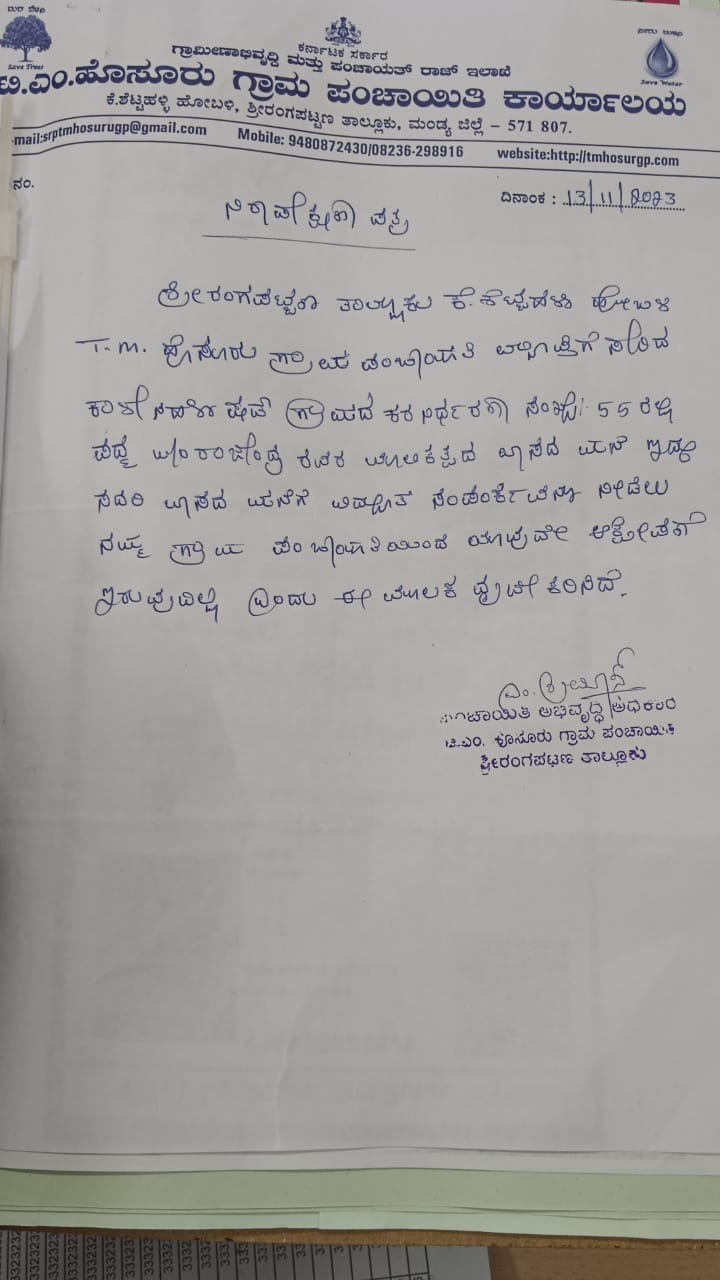 ಮರ ಬೆಳಸಿ
Save Trees
ನೀರು ಉಳಿಸಿ
Save Water
ಕರ್ನಾಟಕ ಸರ್ಕಾರ
ಗ್ರಾಮೀಣಾಭಿವೃದ್ಧಿ ಮತ್ತು ಪಂಚಾಯತ್ ರಾಜ್ ಇಲಾಖೆ
ಟಿ.ಎಂ.ಹೊಸೂರು ಗ್ರಾಮ ಪಂಚಾಯಿತಿ ಕಾರ್ಯಾಲಯ
ಕೆ.ಶೆಟ್ಟಹಳ್ಳಿ ಹೋಬಳಿ, ಶ್ರೀರಂಗಪಟ್ಟಣ ತಾಲ್ಲೂಕು, ಮಂಡ್ಯ ಜಿಲ್ಲೆ – 571 807.
-mail:srptmhosurugp@gmail.com Mobile: 9480872430/08236-298916 website:http://tmhosurgp.com
ನಂ. ದಿನಾಂಕ : 13/11/2023
ನಿರಾಪೇಕ್ಷಣಾ ಪತ್ರ
ಶ್ರೀರಂಗಪಟ್ಟಣ ತಾಲ್ಲೂಕು ಕೆ.ಶೆಟ್ಟಹಳ್ಳಿ ಹೋಬಳಿ
T.M. ಹೊಸೂರು ಗ್ರಾಮ ಪಂಚಾಯತಿ ವ್ಯಾಪ್ತಿಗೆ ಸೇರಿದ
ಗ್ರಾಮದ ಕರ ನಿರ್ಧರಣಾ ಸಂಖ್ಯೆ: 55 ರಲ್ಲಿ
ರವರ ಮಾಲಿಕತ್ವದ ವಾಸದ ಮನೆ ಇದ್ದು
ಸದರಿ ವಾಸದ ಮನೆಗೆ ವಿದ್ಯುತ್ ಸಂಪರ್ಕವನ್ನು ನೀಡಲು
ನಮ್ಮ ಗ್ರಾಮ ಪಂಚಾಯತಿಯಿಂದ ಯಾವುದೇ ಆಕ್ಷೇಪಣೆ
ಇರುವುದಿಲ್ಲ ಎಂದು ಈ ಮೂಲಕ ದೃಢೀಕರಿಸಿದೆ.
ಪಂಚಾಯಿತಿ ಅಭಿವೃದ್ಧಿ ಅಧಿಕಾರಿ
ಟಿ.ಎಂ. ಹೊಸೂರು ಗ್ರಾಮ ಪಂಚಾಯಿತಿ
ಶ್ರೀರಂಗಪಟ್ಟಣ ತಾಲ್ಲೂಕು